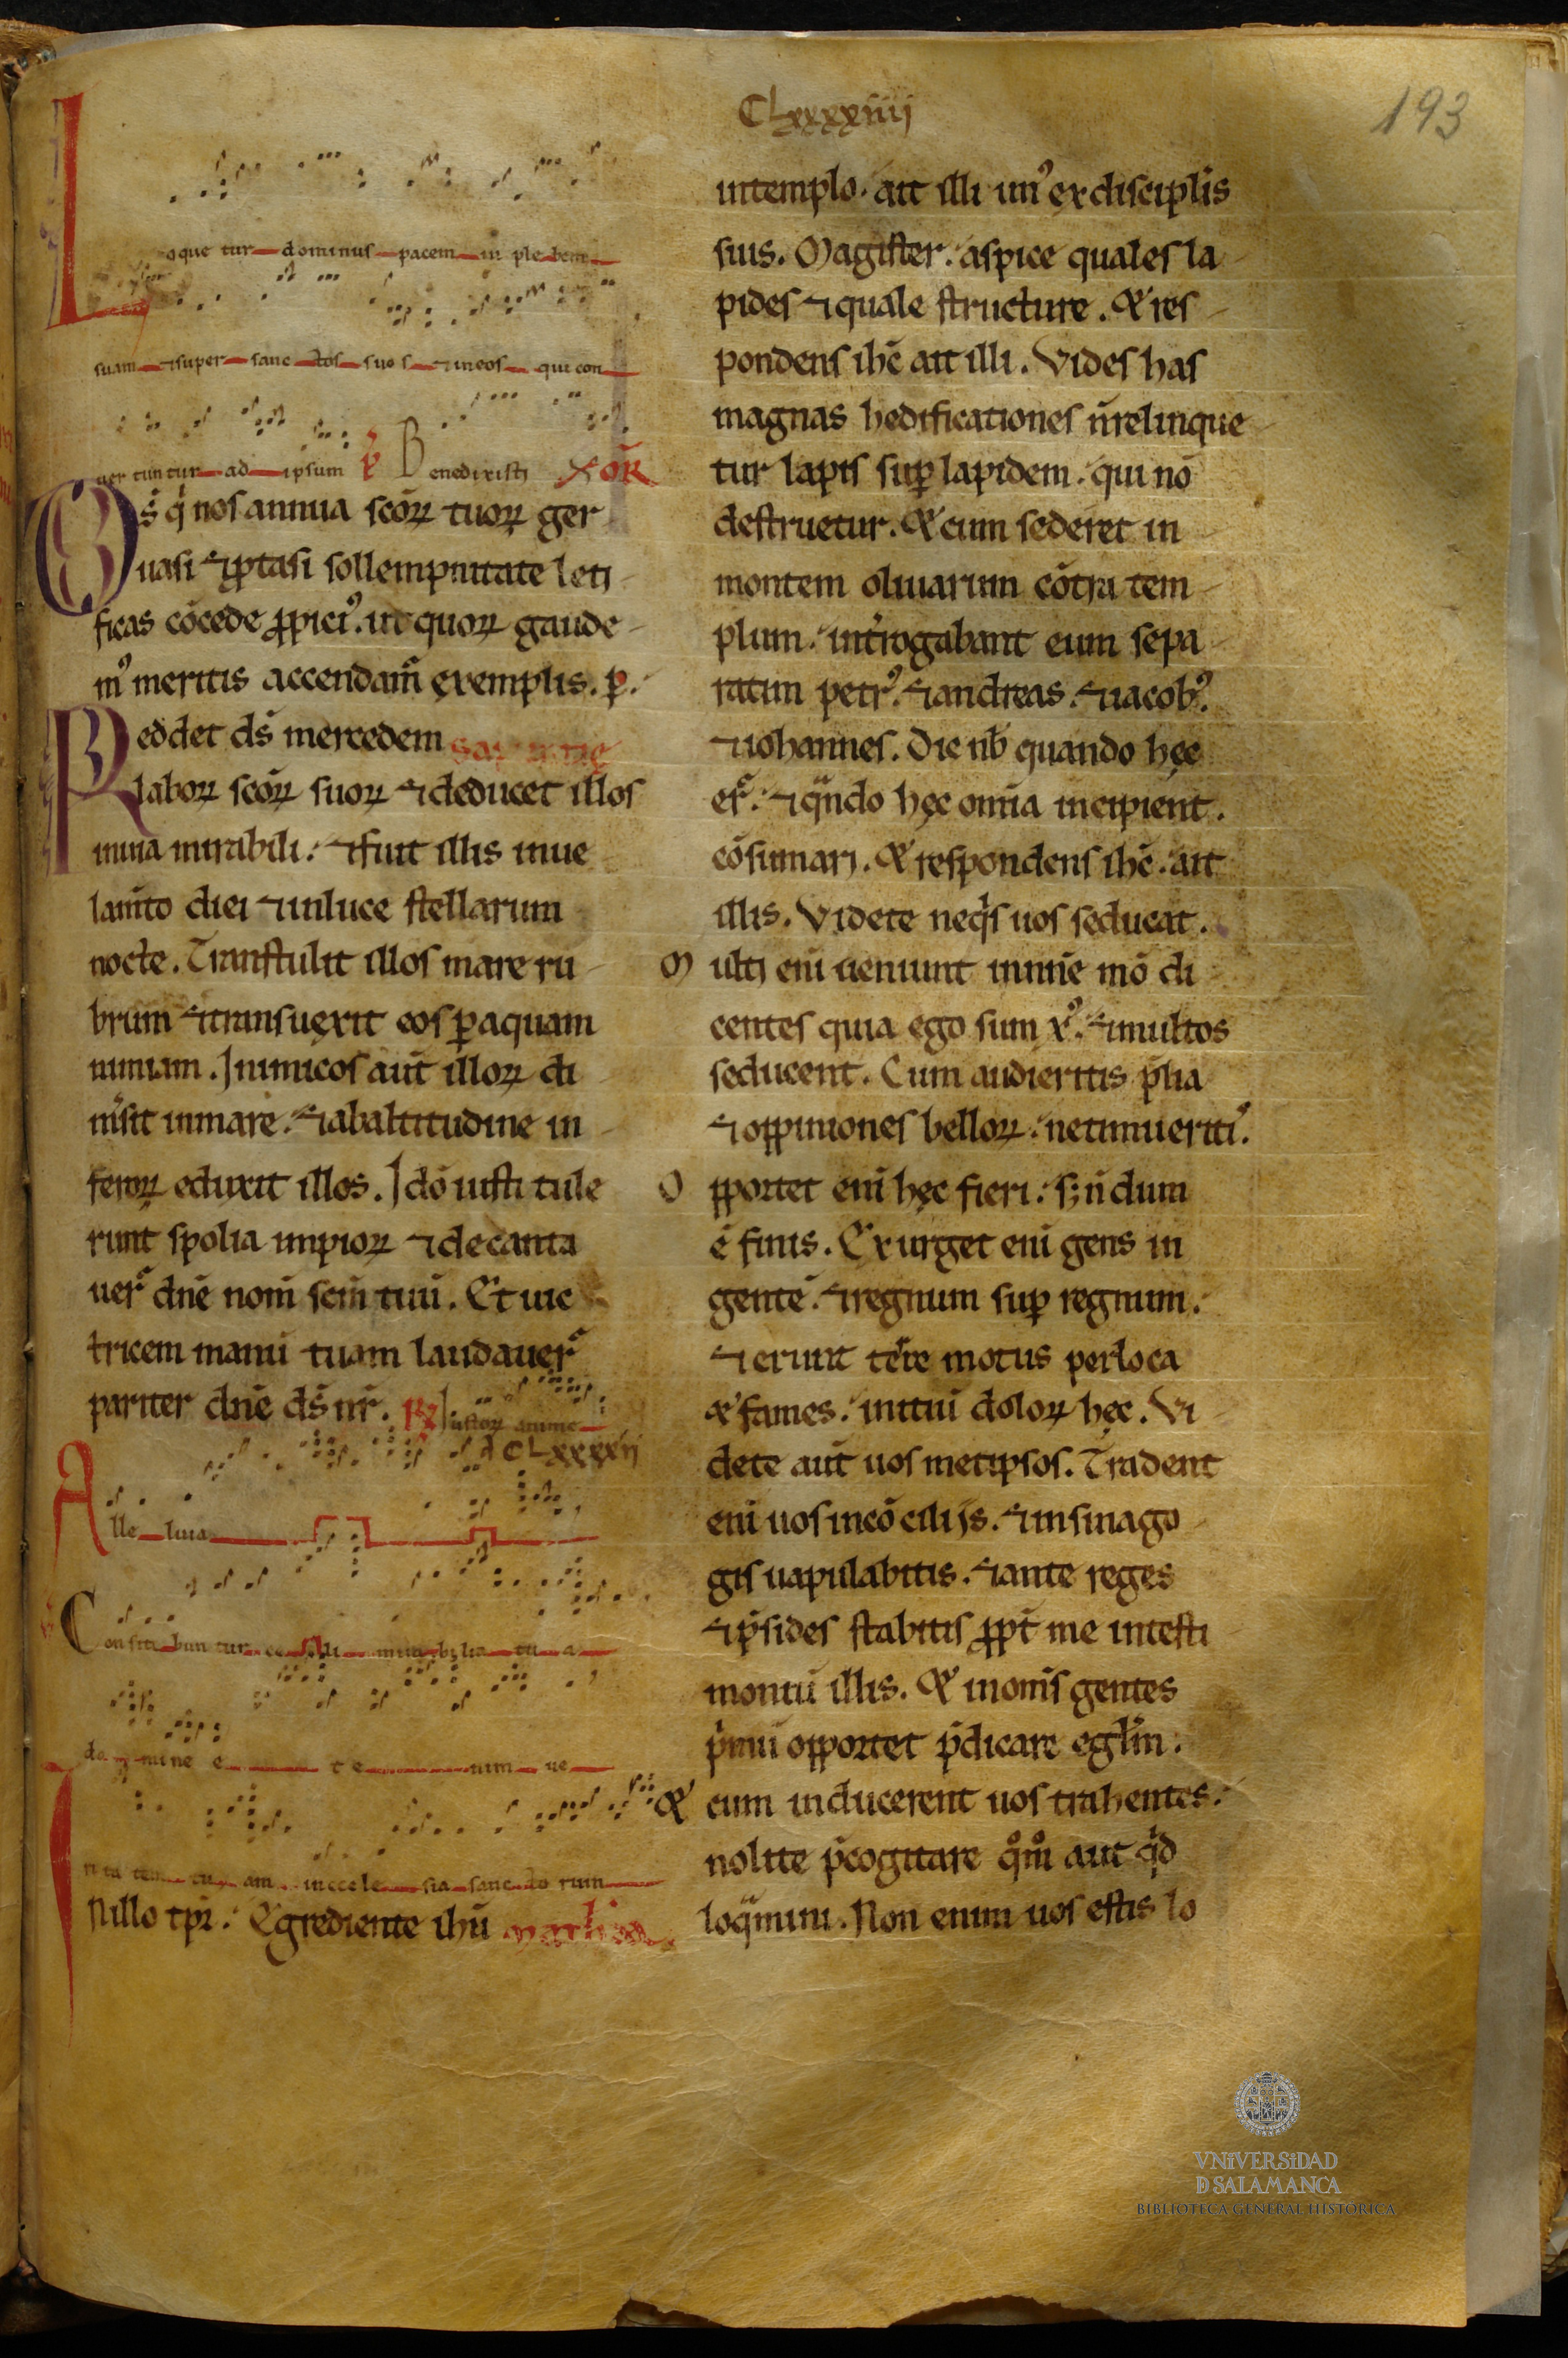 CLxxxxiiij
193
Loque tur dominus pacem in ple bem
suam ⁊super sanc tos suo s ⁊ineos qui con
uer tun tur ad ipsum P Benedixisti OR
Ds̄ q̇ nos annua sc̄oꝝ tuoꝝ ger
uasi ⁊ꝓtasi sollempnitate leti
ficas cōcede ꝓpiciꝰ. ut quoꝝ gaude
mꝰ meritis accendam̄ exemplis. ꝑ.
Reddet ds̄ mercedem
laboꝝ sc̄oꝝ suoꝝ ⁊deducet illos
inuia mirabili. ⁊fuit illis inue
lam̄to diei ⁊inluce stellarum
nocte. Transtulit illos mare ru
brum ⁊transuexit eos ꝑaquam
nimiam. Inimicos aut̄ illoꝝ di
m̄sit inmare. ⁊abaltitudine in
feroꝝ eduxit illos. Idō iusti tule
runt spolia impioꝝ ⁊decanta
uer̄ dn̄e nom̄ sc̄m̄ tuū. Et uic
tricem manū tuam laudauer̄
pariter dn̄e ds̄ nr̄. R Iustoꝝ anime
CLxxxxij
Alle luia
Confite bun tur ce li mira bilia tu a
do mine e t e nim ue
ri ta tem tu am in eccle sia sanc to rum
Nillo tp̄r. Egrediente ihū
intemplo. ait illi unꝰ exdiscipl̄is
suis. Magister. aspice quales la
pides ⁊quale structure. Et res
pondens ihē ait illi. Vides has
magnas hedificationes n̄relinque
tur lapis suꝑ lapidem. qui nō
destruetur. Et cum sederet in
montem oliuarum cōtra tem
plum. int̄rogabant eum sepa
ratim petrꝰ. ⁊andreas. ⁊iacobꝰ.
⁊iohannes. Dic nb̄ quando hęc
er̄. ⁊qͣndo hęc om̄ia incipient.
cōsumari. Et respondens ihē. ait
illis. Videte neq̇s uos seducat.
Multi enī uenient innn̄e mō di
centes quia ego sum xꝰ. ⁊multos
seducent. Cum audieritis p̄lia
⁊oppiniones belloꝝ. netimueritiꝰ.
Opportet enī hęc fieri. sꝫ n̄dum
ē finis. Exurget enī gens in
gentē. ⁊regnum suꝑ regnum.
⁊erunt terre motus perloca
et fames. initiū doloꝝ hęc. Vi
dete aut̄ uos metipsos. Tradent
enī uos incōcilijs. ⁊insinago
gis uapulabitis. ⁊ante reges
⁊p̄sides stabitis ꝓpt̄ me intesti
moniū illis. Et inom̄s gentes
ṗmū opportet p̄dicare eḡlm̄.
Et cum inducerent uos trahentes.
nolite p̄cogitare qͦmͦ aut q̇d
loqͣmini. Non enim uos estis lo
VNiVERSiDAD
D SALAMANCA
BIBLIOTECA GENERAL HISTÓRICA